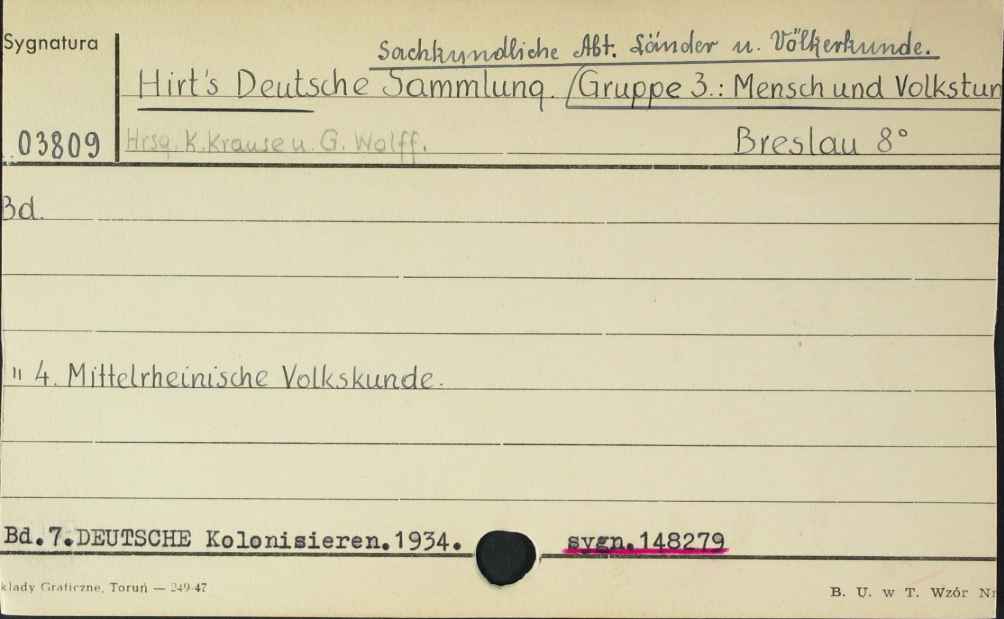 Sygnatura
Sachkundliche Abt. Länder u. Völkerkunde.
Hirt's Deutsche Sammlung. (Gruppe 3.: Mensch und Volkstum
03809
Hrsg. K. Krause u. G. Wolff.
Breslau 8°
Bd.
" 4. Mittelrheinische Volkskunde.
Bd.7.DEUTSCHE Kolonisieren.1934. sygn.148279
kłady Graficzne, Toruń — 249-47
B. U. w T. Wzór Nr